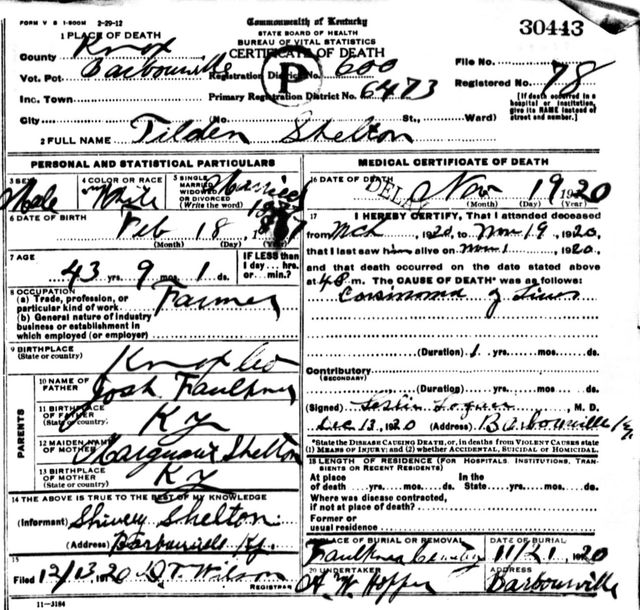 FORM V S 1-500M 2-29-12
Commonwealth of Kentucky
30443
STATE BOARD OF HEALTH
BUREAU OF VITAL STATISTICS
CERTIFICATE OF DEATH
1 PLACE OF DEATH
County Knox
Vot. Pct Barbourville
Registration District No. 600
File No.
Inc. Town
Primary Registration District No. 6473
Registered No. 78
City (No. St., Ward)
[If death occurred in a hospital or institution, give its NAME instead of street and number.]
P
2 FULL NAME Tilden Shelton
PERSONAL AND STATISTICAL PARTICULARS
3 SEX Male
4 COLOR OR RACE White
5 SINGLE MARRIED WIDOWED OR DIVORCED (Write the word) Married
6 DATE OF BIRTH Feb 18
(Month) (Day) (Year)
7 AGE 43 yrs. 9 mos. 1 ds.
IF LESS than 1 day... hrs. or min.?
8 OCCUPATION
(a) Trade, profession, or particular kind of work Farmer
(b) General nature of industry business or establishment in which employed (or employer)
9 BIRTHPLACE (State or country) Knox Co
PARENTS
10 NAME OF FATHER Josh Faulkner
11 BIRTHPLACE OF FATHER (State or country) Ky
12 MAIDEN NAME OF MOTHER Shelton
13 BIRTHPLACE OF MOTHER (State or country) Ky
14 THE ABOVE IS TRUE TO THE BEST OF MY KNOWLEDGE
(Informant) Shelton
(Address) Barbourville Ky.
15
Filed 12/13 1920 Wilson
REGISTRAR
11-3184
MEDICAL CERTIFICATE OF DEATH
16 DATE OF DEATH Nov 19 1920
(Month) (Day) (Year)
17 I HEREBY CERTIFY, That I attended deceased
from Mch, 1920, to Nov 19, 1920,
that I last saw him alive on Nov 1, 1920,
and that death occurred on the date stated above
at m. The CAUSE OF DEATH* was as follows:
Carsinoma of Liver
(Duration) 1 yrs. mos. ds.
Contributory
(SECONDARY)
(Duration) yrs. mos. ds.
(Signed) Leslie Logan, M. D.
Dec 13, 1920 (Address) Barbourville Ky
*State the DISEASE CAUSING DEATH, or, in deaths from VIOLENT CAUSES state
(1) MEANS OF INJURY; and (2) whether ACCIDENTAL, SUICIDAL or HOMICIDAL.
18 LENGTH OF RESIDENCE (FOR HOSPITALS, INSTITUTIONS, TRANSIENTS OR RECENT RESIDENTS)
At place of death yrs. mos. ds.
In the State yrs. mos. ds.
Where was disease contracted, if not at place of death?
Former or usual residence
PLACE OF BURIAL OR REMOVAL Faulkner Cemetery
DATE OF BURIAL 11/21 1920
20 UNDERTAKER A W Hopper
ADDRESS Barbourville